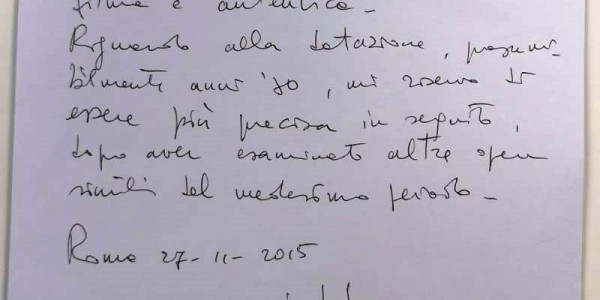 firma è autentica.
Riguardo alla datazione, presumi-
bilmente anni '80, mi riservo di
essere più precisa in seguito,
dopo aver esaminato altre opere
simili del medesimo periodo.
Roma 27-11-2015